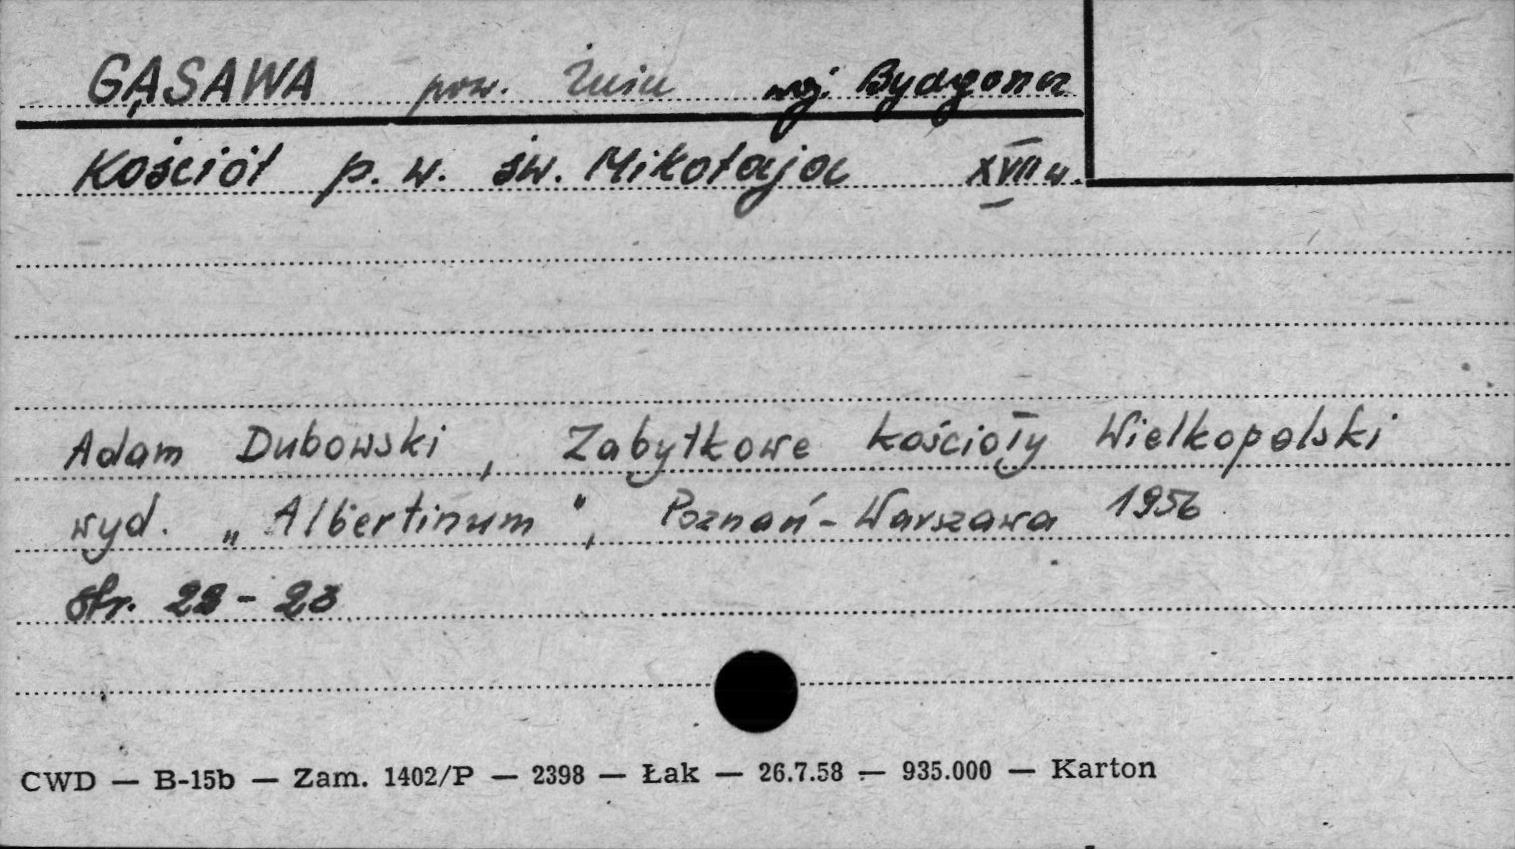 GĄSAWA pow. Żnin woj. Bydgoszcz
Kościół p.w. św. Mikołaja XVII w.
Adam Dubowski, Zabytkowe kościoły Wielkopolski
wyd. „Albertinum", Poznań-Warszawa 1956
str. 22-23
CWD — B-15b — Zam. 1402/P — 2398 — Łak — 26.7.58 — 935.000 — Karton